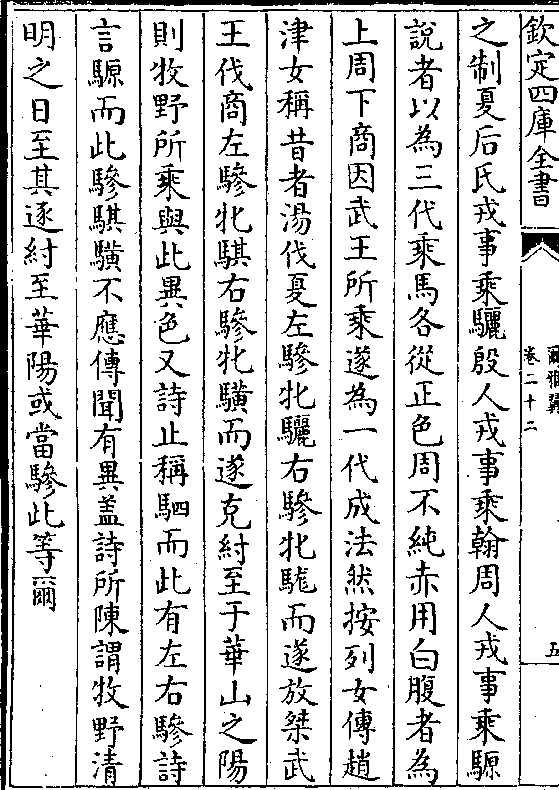 欽定四庫全書
爾雅翼
卷二十二
五
之制夏后氏戎事乘驪殷人戎事乘翰周人戎事乘騵
說者以為三代乘馬各從正色周不純赤用白腹者為
上周下商因武王所乘遂為一代成法然按列女傳趙
津女稱昔者湯伐夏左驂牝驪右驂牝駹而遂放桀武
王伐商左驂牝騏右驂牝驥而遂克紂至于華山之陽
則牧野所乘與此異色又詩止稱駟而此有左右驂詩
言騵而此驂騏驥不應傳聞有異盖詩所陳謂牧野清
明之日至其逐紂至華陽或當驂此等爾